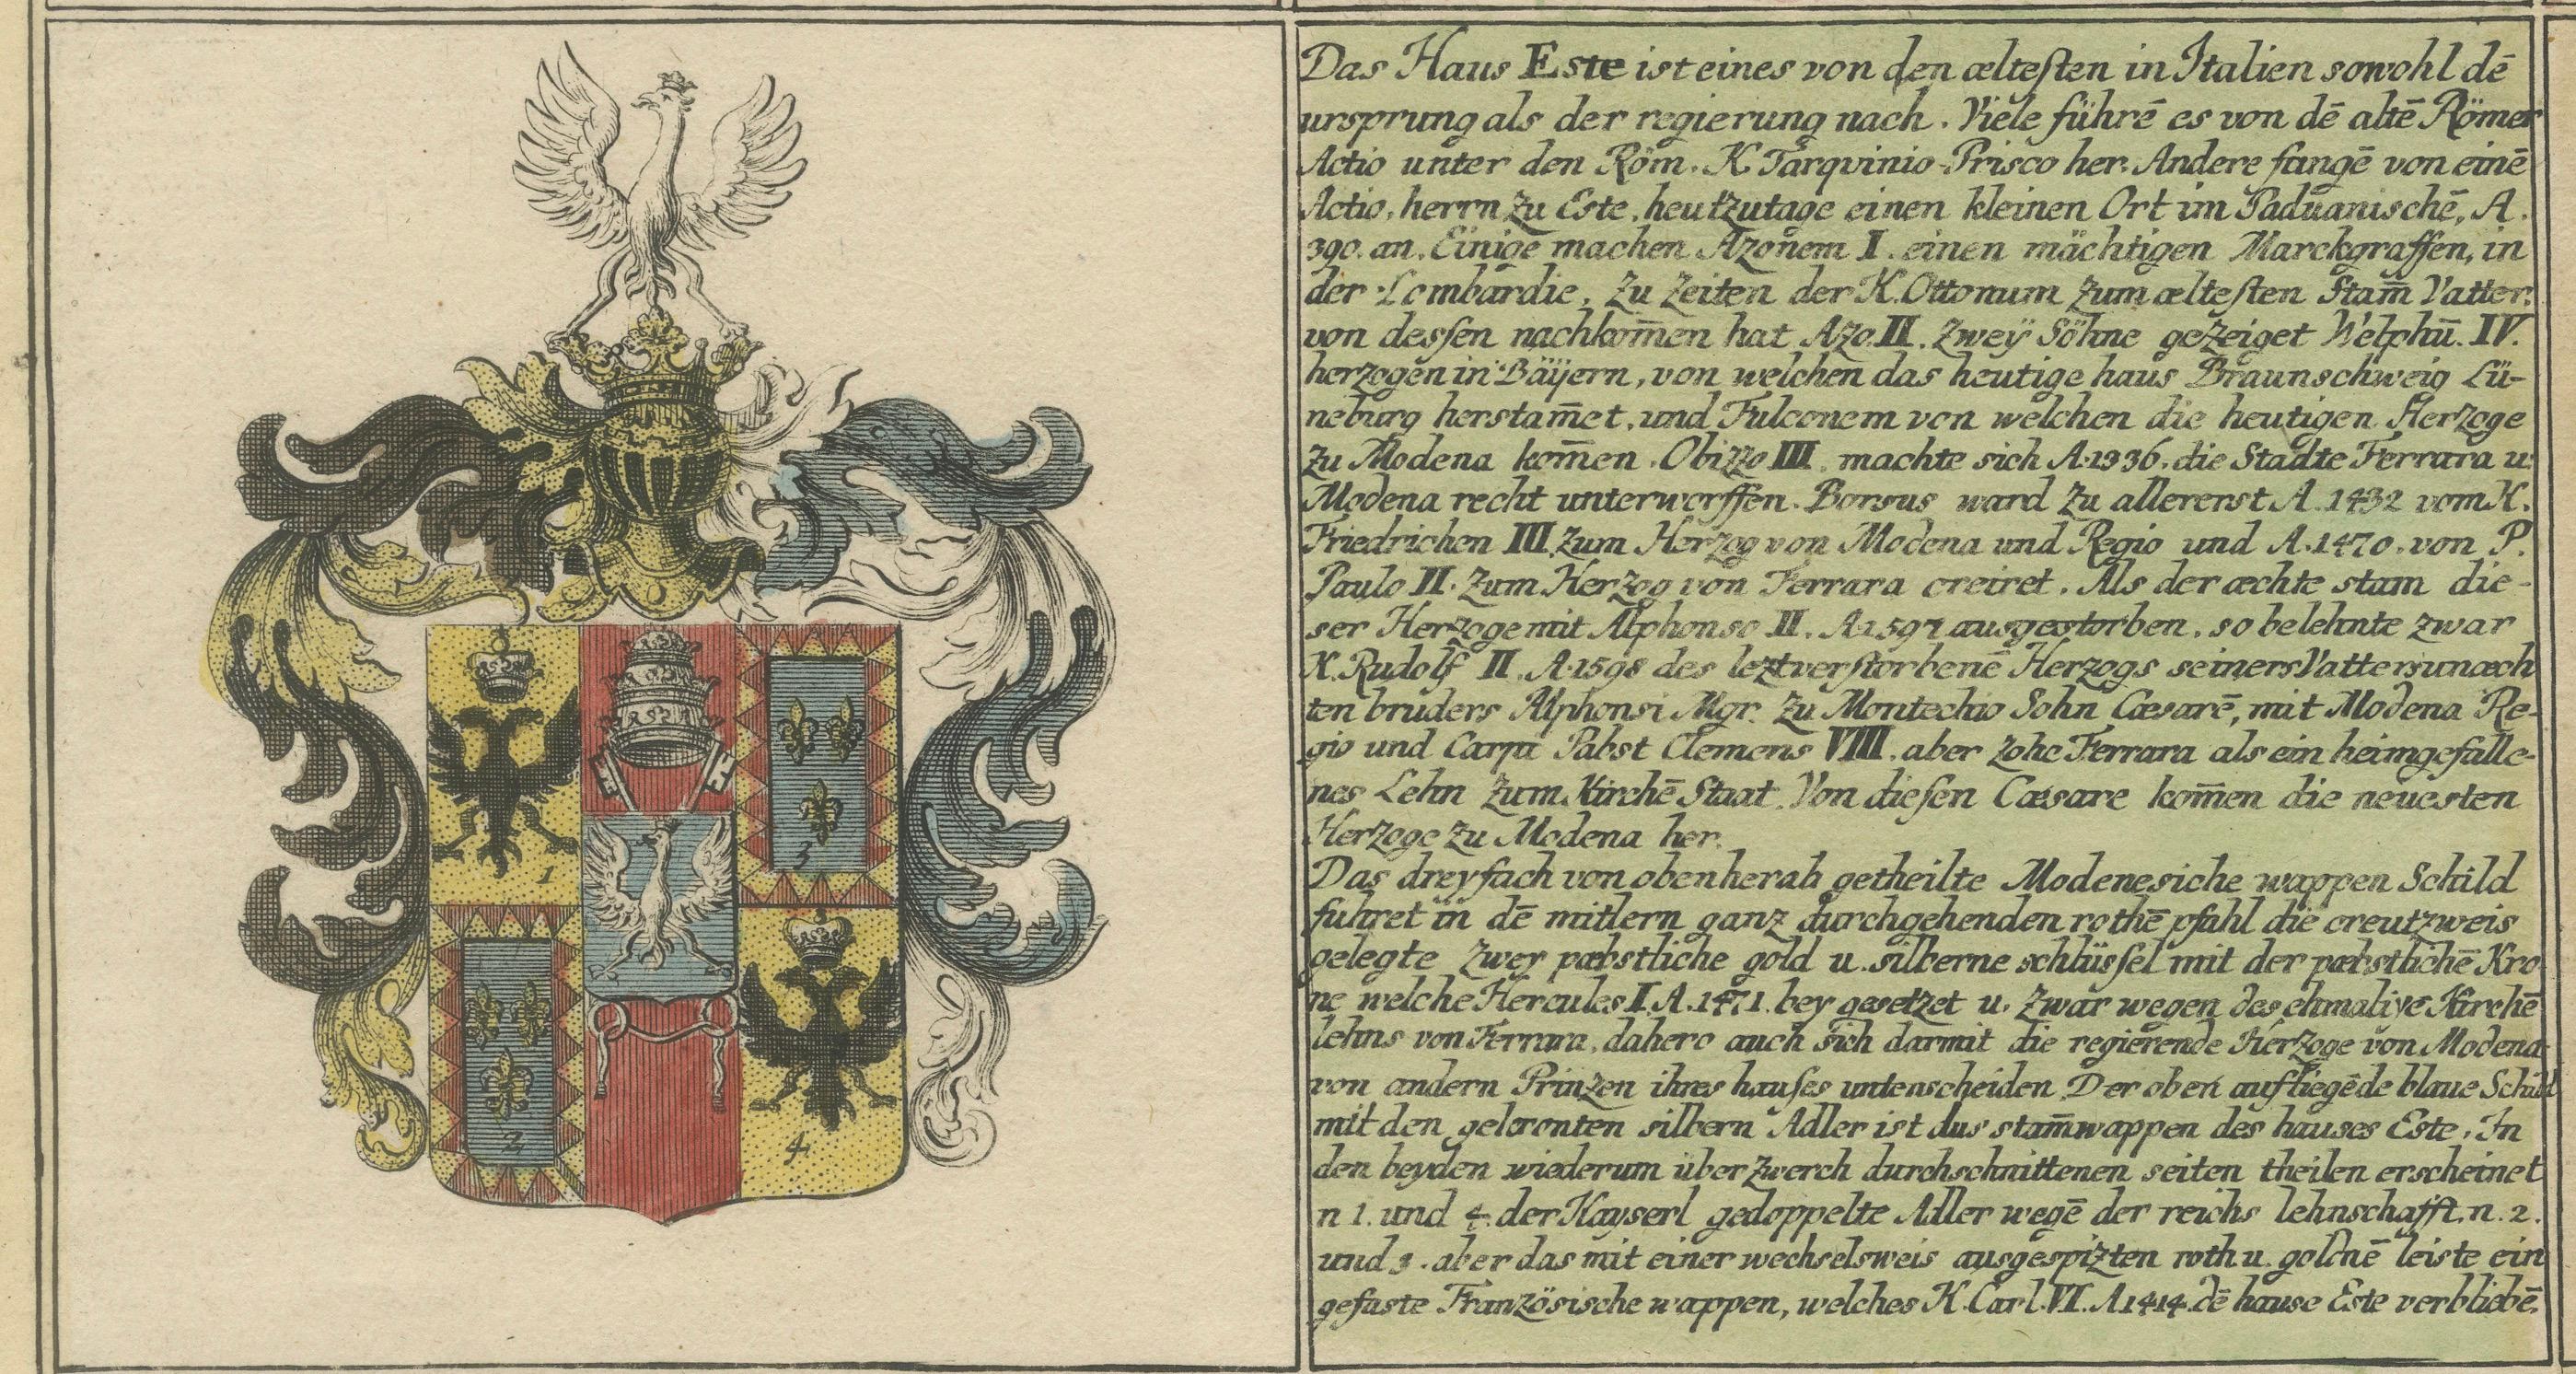 Das Haus Este ist eines von den æltesten in Italien sowohl dē
ursprung als der regierung nach. Viele führē es von dē altē Römer
Actio unter den Röm. K. Tarqvinio Prisco her. Andere fangē von einē
Actio, herrn zu Este, heutzutage einen kleinen Ort im Paduanischē, A.
390. an. Einige machen Azonem I. einen mächtigen Marckgraffen, in
der Lombardie, zu Zeiten der K. Ottonum zum æltesten Stam̄ Vatter.
von dessen nachkom̄en hat Azo II. Zweÿ Söhne gezeiget Welphū. IV.
herzogen in Bäÿern, von welchen das heutige haus Braunschweig Lü-
neburg herstam̄et, und Fulconem von welchen die heutigen Herzoge
zu Modena kom̄en. Obizzo III. machte sich A. 1336. die Stadte Ferrara u:
Modena recht unterworffen. Borsus ward zu allererst A. 1432 vom K.
Friedrichen III. zum Herzog von Modena und Regio und A. 1470. von P.
Paulo II. zum Herzog von Ferrara creiret. Als der æchte stam die-
ser Herzoge mit Alphonso II. A. 1597 ausgestorben, so belehnte zwar
K. Rudolf II. A. 1598 des leztverstorbenē Herzogs seiners Vatters unæch
ten bruders Alphonsi Mgr. zu Montechio Sohn Cæsarē, mit Modena Re-
gio und Carpi Pabst Clemens VIII. aber zohe Ferrara als ein heimgefalle-
nes Lehn zum Kirchē Staat. Von diesen Cæsare kom̄en die neuesten
Herzoge zu Modena her.
Das dreyfach von obenherab getheilte Modenesiche wappen Schild
fuhret in dē mitlern ganz durchgehenden rothē pfahl die creutzweis
gelegte zwey pæbstliche gold u. silberne schlüssel mit der pæbstlichē Kro
ne welche Hercules I. A. 1471. bey gesetzet u. zwar wegen des ehmaligē Kirchē
lehns von Ferrara, dahero auch sich darmit die regierende Herzoge von Modena
von andern Prinzen ihres hauses unterscheiden Der oben aufliegēde blaue Schild
mit den gekronten silbern Adler ist das stam̄wappen des hauses Este. In
den beyden wiederum überzwerch durchschnittenen seiten theilen erscheinet
n 1. und 4. der Kayserl gedoppelte Adler wegē der reichs lehnschafft. n. 2.
und 3. aber das mit einer wechselsweis ausgespizten roth u. goldnē leiste ein
gefaste Französische wappen, welches K. Carl. VI. A 1414. dē hause Este verbliebē.
1
3
2
4